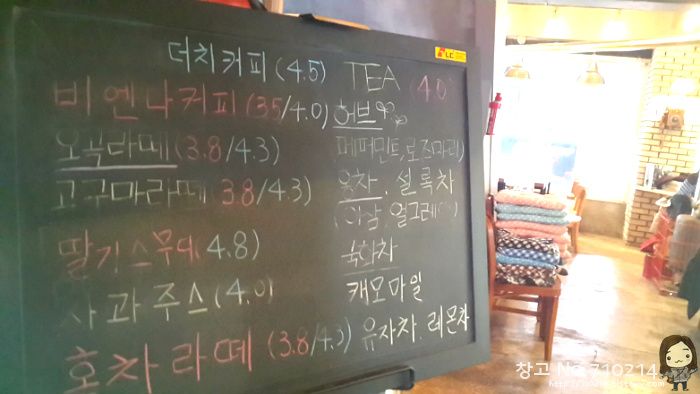 더치커피 (4.5)
비엔나커피 (3.5/4.0)
오곡라떼 (3.8/4.3)
고구마라떼 (3.8/4.3)
딸기스무디 (4.8)
사과주스 (4.0)
호차라떼 (3.8/4.3)
TEA (4.0)
허브
페퍼민트, 로즈마리)
홍차. 설록차
얼그레이
국화차
캐모마일
유자차. 레몬차
LC
창고 No. 710214